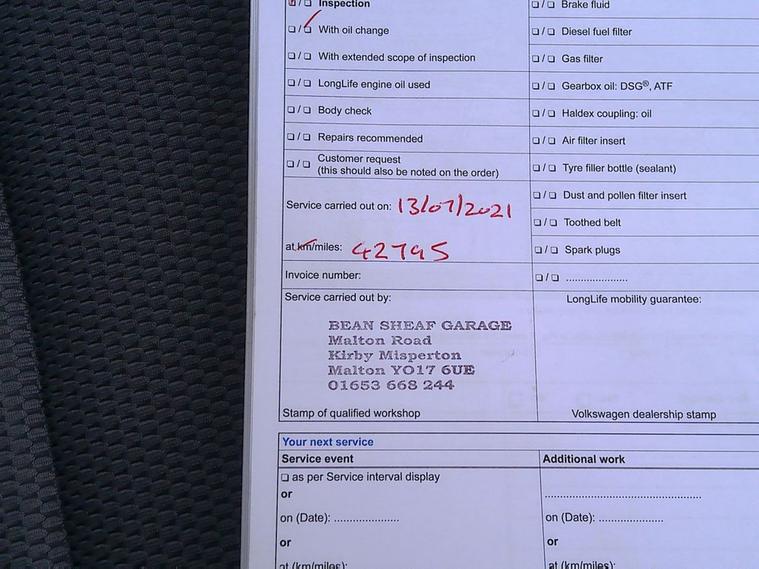 ❑ / ❑ Inspection
❑ / ❑ With oil change
❑ / ❑ With extended scope of inspection
❑ / ❑ LongLife engine oil used
❑ / ❑ Body check
❑ / ❑ Repairs recommended
❑ / ❑ Customer request
(this should also be noted on the order)
Service carried out on: 13/07/2021
at km/miles: 42795
Invoice number:
Service carried out by:
BEAN SHEAF GARAGE
Malton Road
Kirby Misperton
Malton YO17 6UE
01653 668 244
Stamp of qualified workshop
❑ / ❑ Brake fluid
❑ / ❑ Diesel fuel filter
❑ / ❑ Gas filter
❑ / ❑ Gearbox oil: DSG®, ATF
❑ / ❑ Haldex coupling: oil
❑ / ❑ Air filter insert
❑ / ❑ Tyre filler bottle (sealant)
❑ / ❑ Dust and pollen filter insert
❑ / ❑ Toothed belt
❑ / ❑ Spark plugs
❑ / ❑ .....................
LongLife mobility guarantee:
Volkswagen dealership stamp
Your next service
Service event
❑ as per Service interval display
or
on (Date): .....................
or
at (km/miles):
Additional work
..................................................
on (Date): .....................
or
at (km/miles):